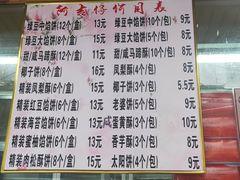 阿 仔 价 目 表
绿豆中馅饼(12个/盒) 13元 绿豆中馅饼(10个/包) 9元
绿豆大馅饼(8个/盒) 13元 绿豆大馅饼(5个/包) 9元
甜/咸马蹄酥(12个/盒) 15元 甜/咸马蹄酥(10个/包) 9元
椰子饼(8个/盒) 15元 凤梨酥(4个/包) 5元
精装凤梨酥(6个/盒) 16元 椰子饼(3个/包) 5元
精装红豆馅饼(6个/盒) 13元 老婆饼(5个/包) 9元
精装海苔馅饼(6个/盒) 13元 咸蛋黄酥(4个/包) 10元
精装蜜柚馅饼(6个/盒) 13元 香芋酥(3个/包) 8元
精装肉松酥饼(8个/盒) 16元 太阳饼(4个/包) 9元